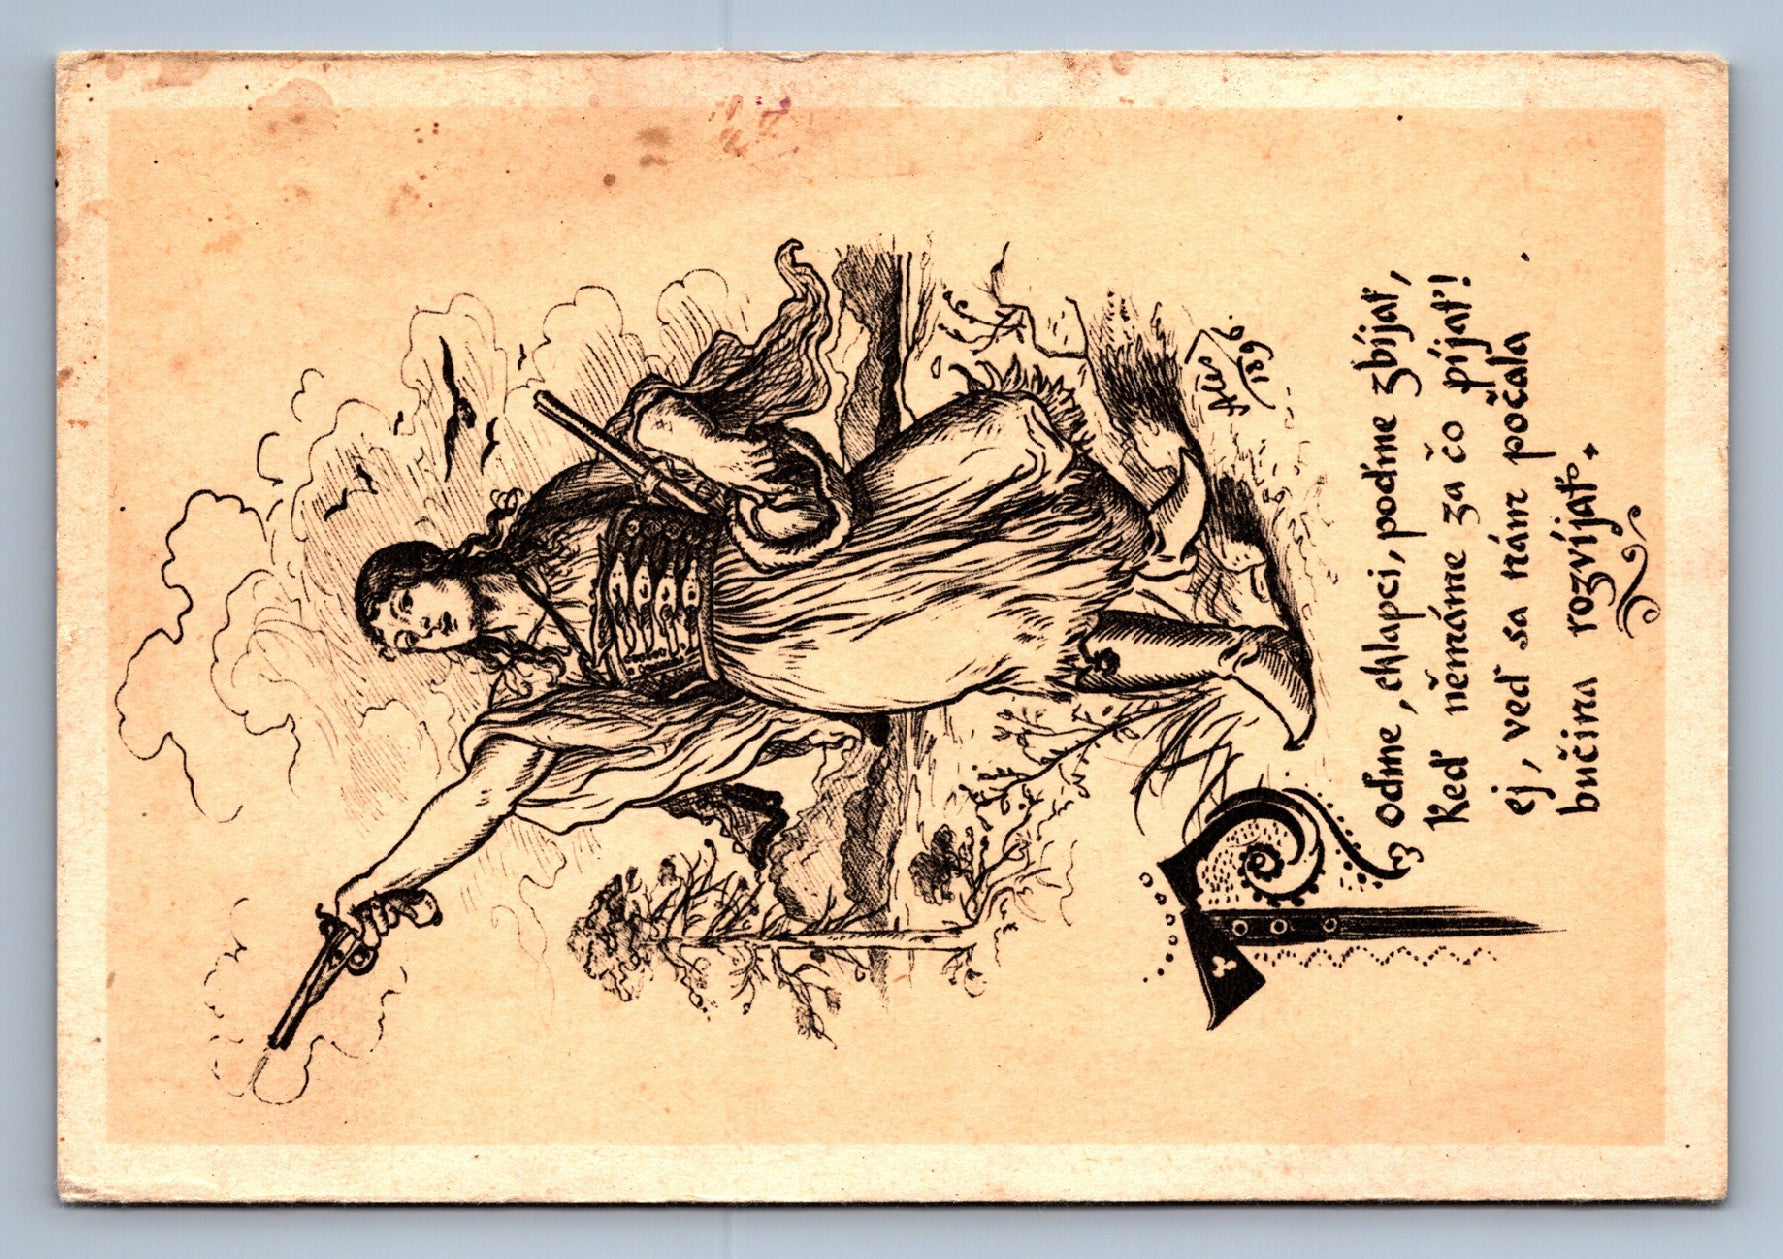 Aleš
1896.
Poďme, chlapci, poďme zbíjať,
Keď ňemáme za čo píjať!
ej, veď sa nám počala
bučina rozvíjať.